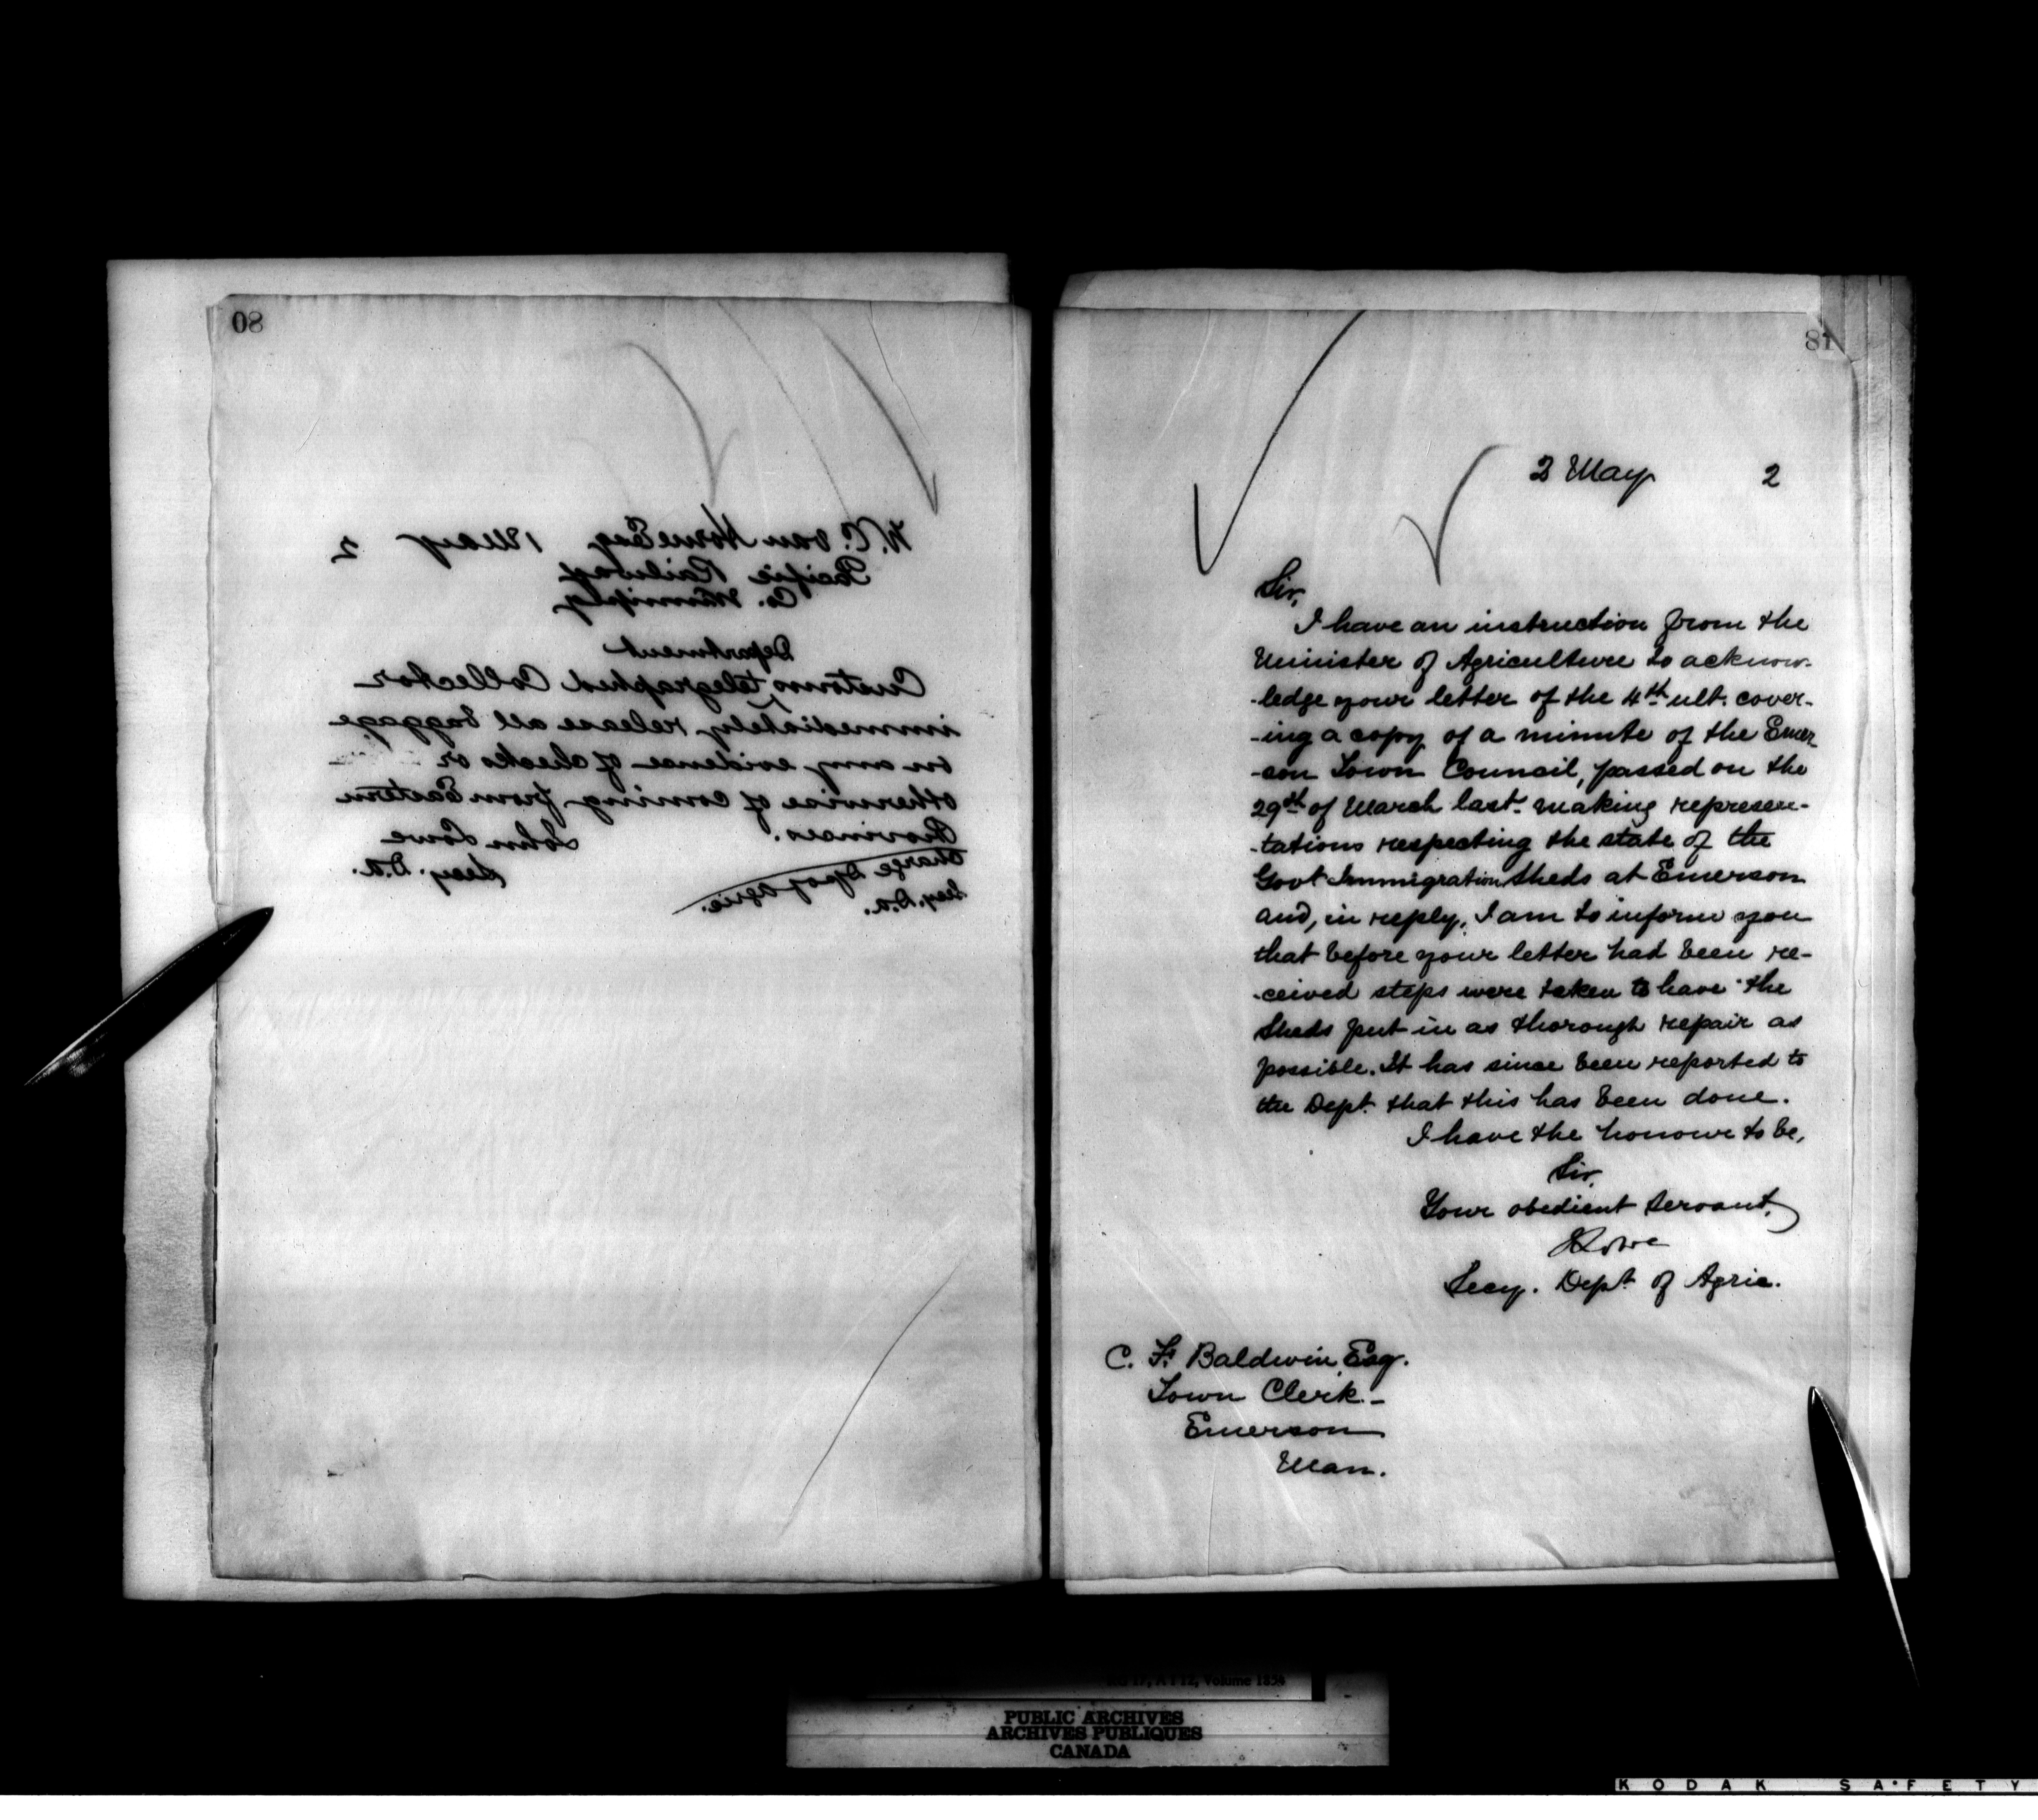 80
W. C. van Horne Esq 1 May 2
Pacific Railway
Co. Winnipeg
Department
Customs telegraphed Collector
immediately release all baggage
on any evidence of checks or
otherwise of coming from Eastern
Provinces.
John Lowe
Secy. D.A.
Charge Dp of Agric.
Secy. D.A.
81
2 May 2
Sir,
I have an instruction from the
Minister of Agriculture to acknow-
-ledge your letter of the 4th ult. cover-
-ing a copy of a minute of the Emer-
-son Town Council, passed on the
29th of March last making represen-
-tations respecting the state of the
Govt Immigration Sheds at Emerson
and, in reply, I am to inform you
that before your letter had been re-
-ceived steps were taken to have the
Sheds put in as thorough repair as
possible. It has since been reported to
the Dept. that this has been done.
I have the honour to be,
Sir,
Your obedient Servant,
J Lowe
Secy. Dept of Agric.
C. F. Baldwin Esq.
Town Clerk -
Emerson
Man.
RG 17, A I 12, Volume 1854
PUBLIC ARCHIVES
ARCHIVES PUBLIQUES
CANADA
KODAK SAFETY